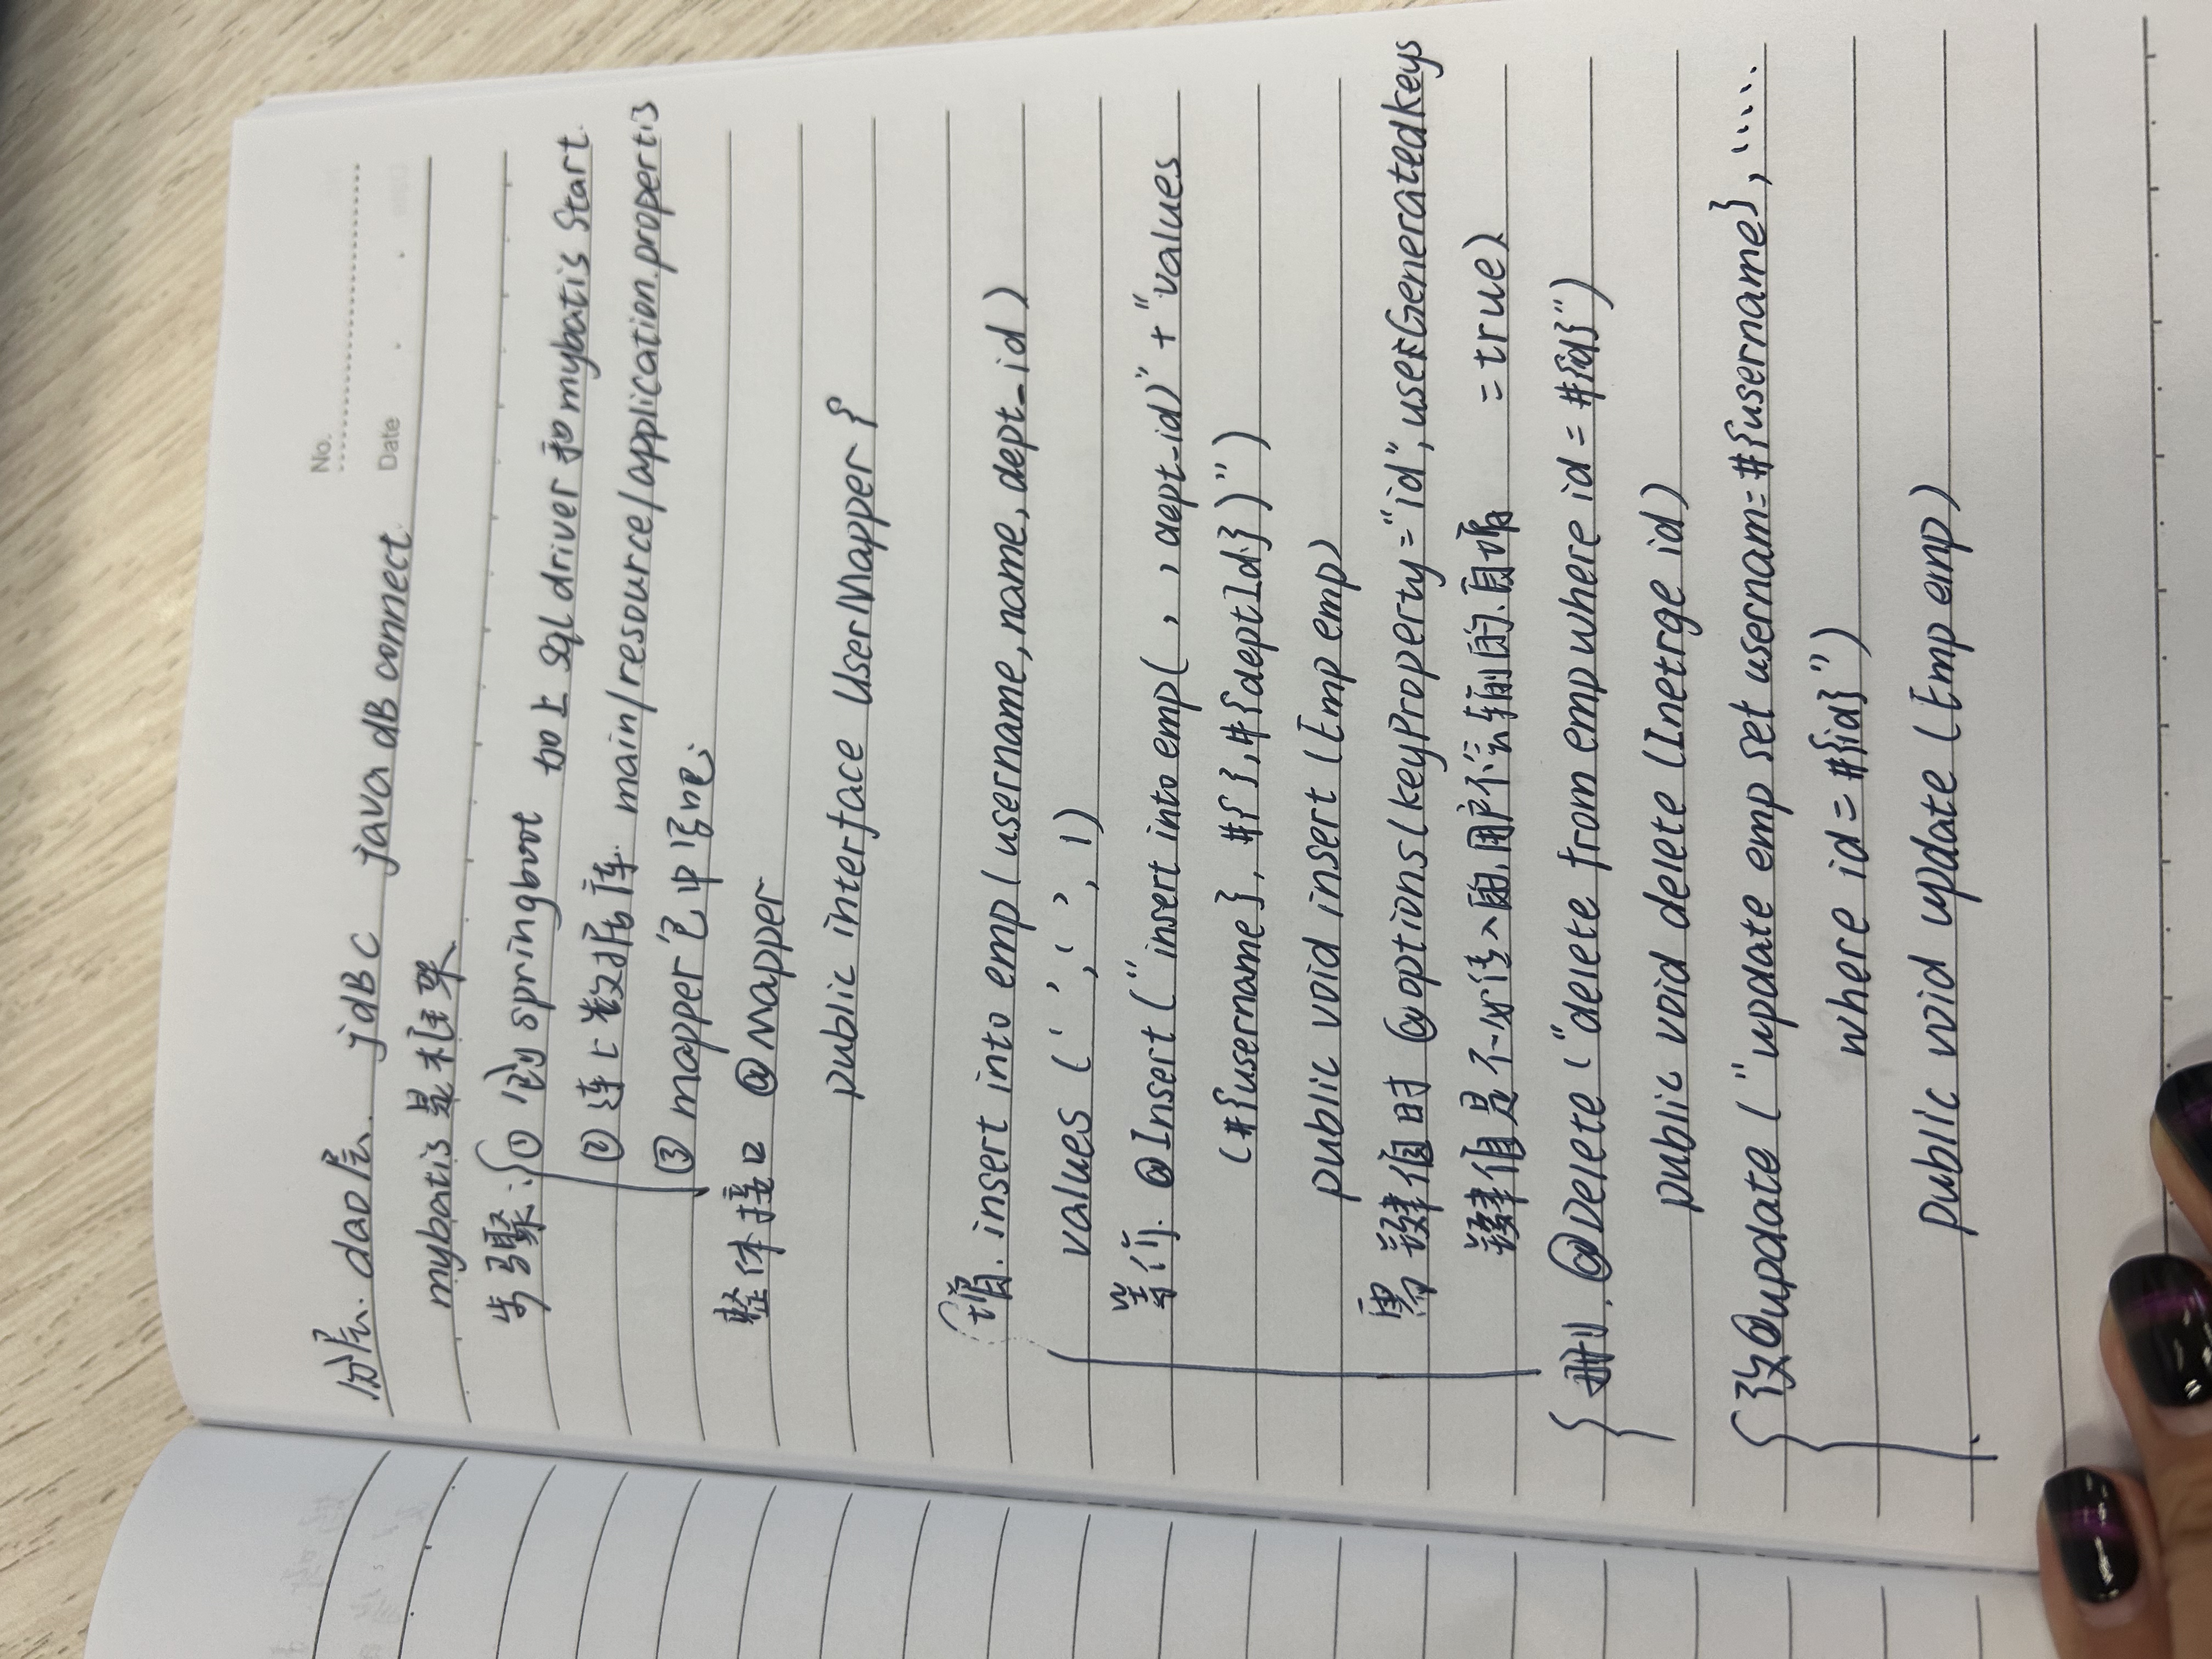 No.
Date
分层. dao层. jdBC java dB connect
mybatis 是框架
步骤: ① 创springboot 加上 sql driver 和 mybatis Start.
② 连上数据库. main/resource/application.propertis
③ mapper包中写吧;
整体接口 @Mapper
public interface UserMapper {
增. insert into emp ( username, name, dept_id )
values (‘ ’, ‘ ’, 1)
等价. @Insert (“insert into emp( , , dept_id)” + “values
(#{username}, #{ }, #{deptId})”)
public void insert (Emp emp)
需键值时 @options(keyProperty=“id”, useGeneratedkeys
=true)
键值是不必传入的, 用户不会输的. 自增
删. @Delete (“delete from emp where id = #{id}”)
public void delete (Inetrge id)
改@update (“update emp set usernam=#{username}, ......
where id = #{id}”)
public void update (Emp emp)